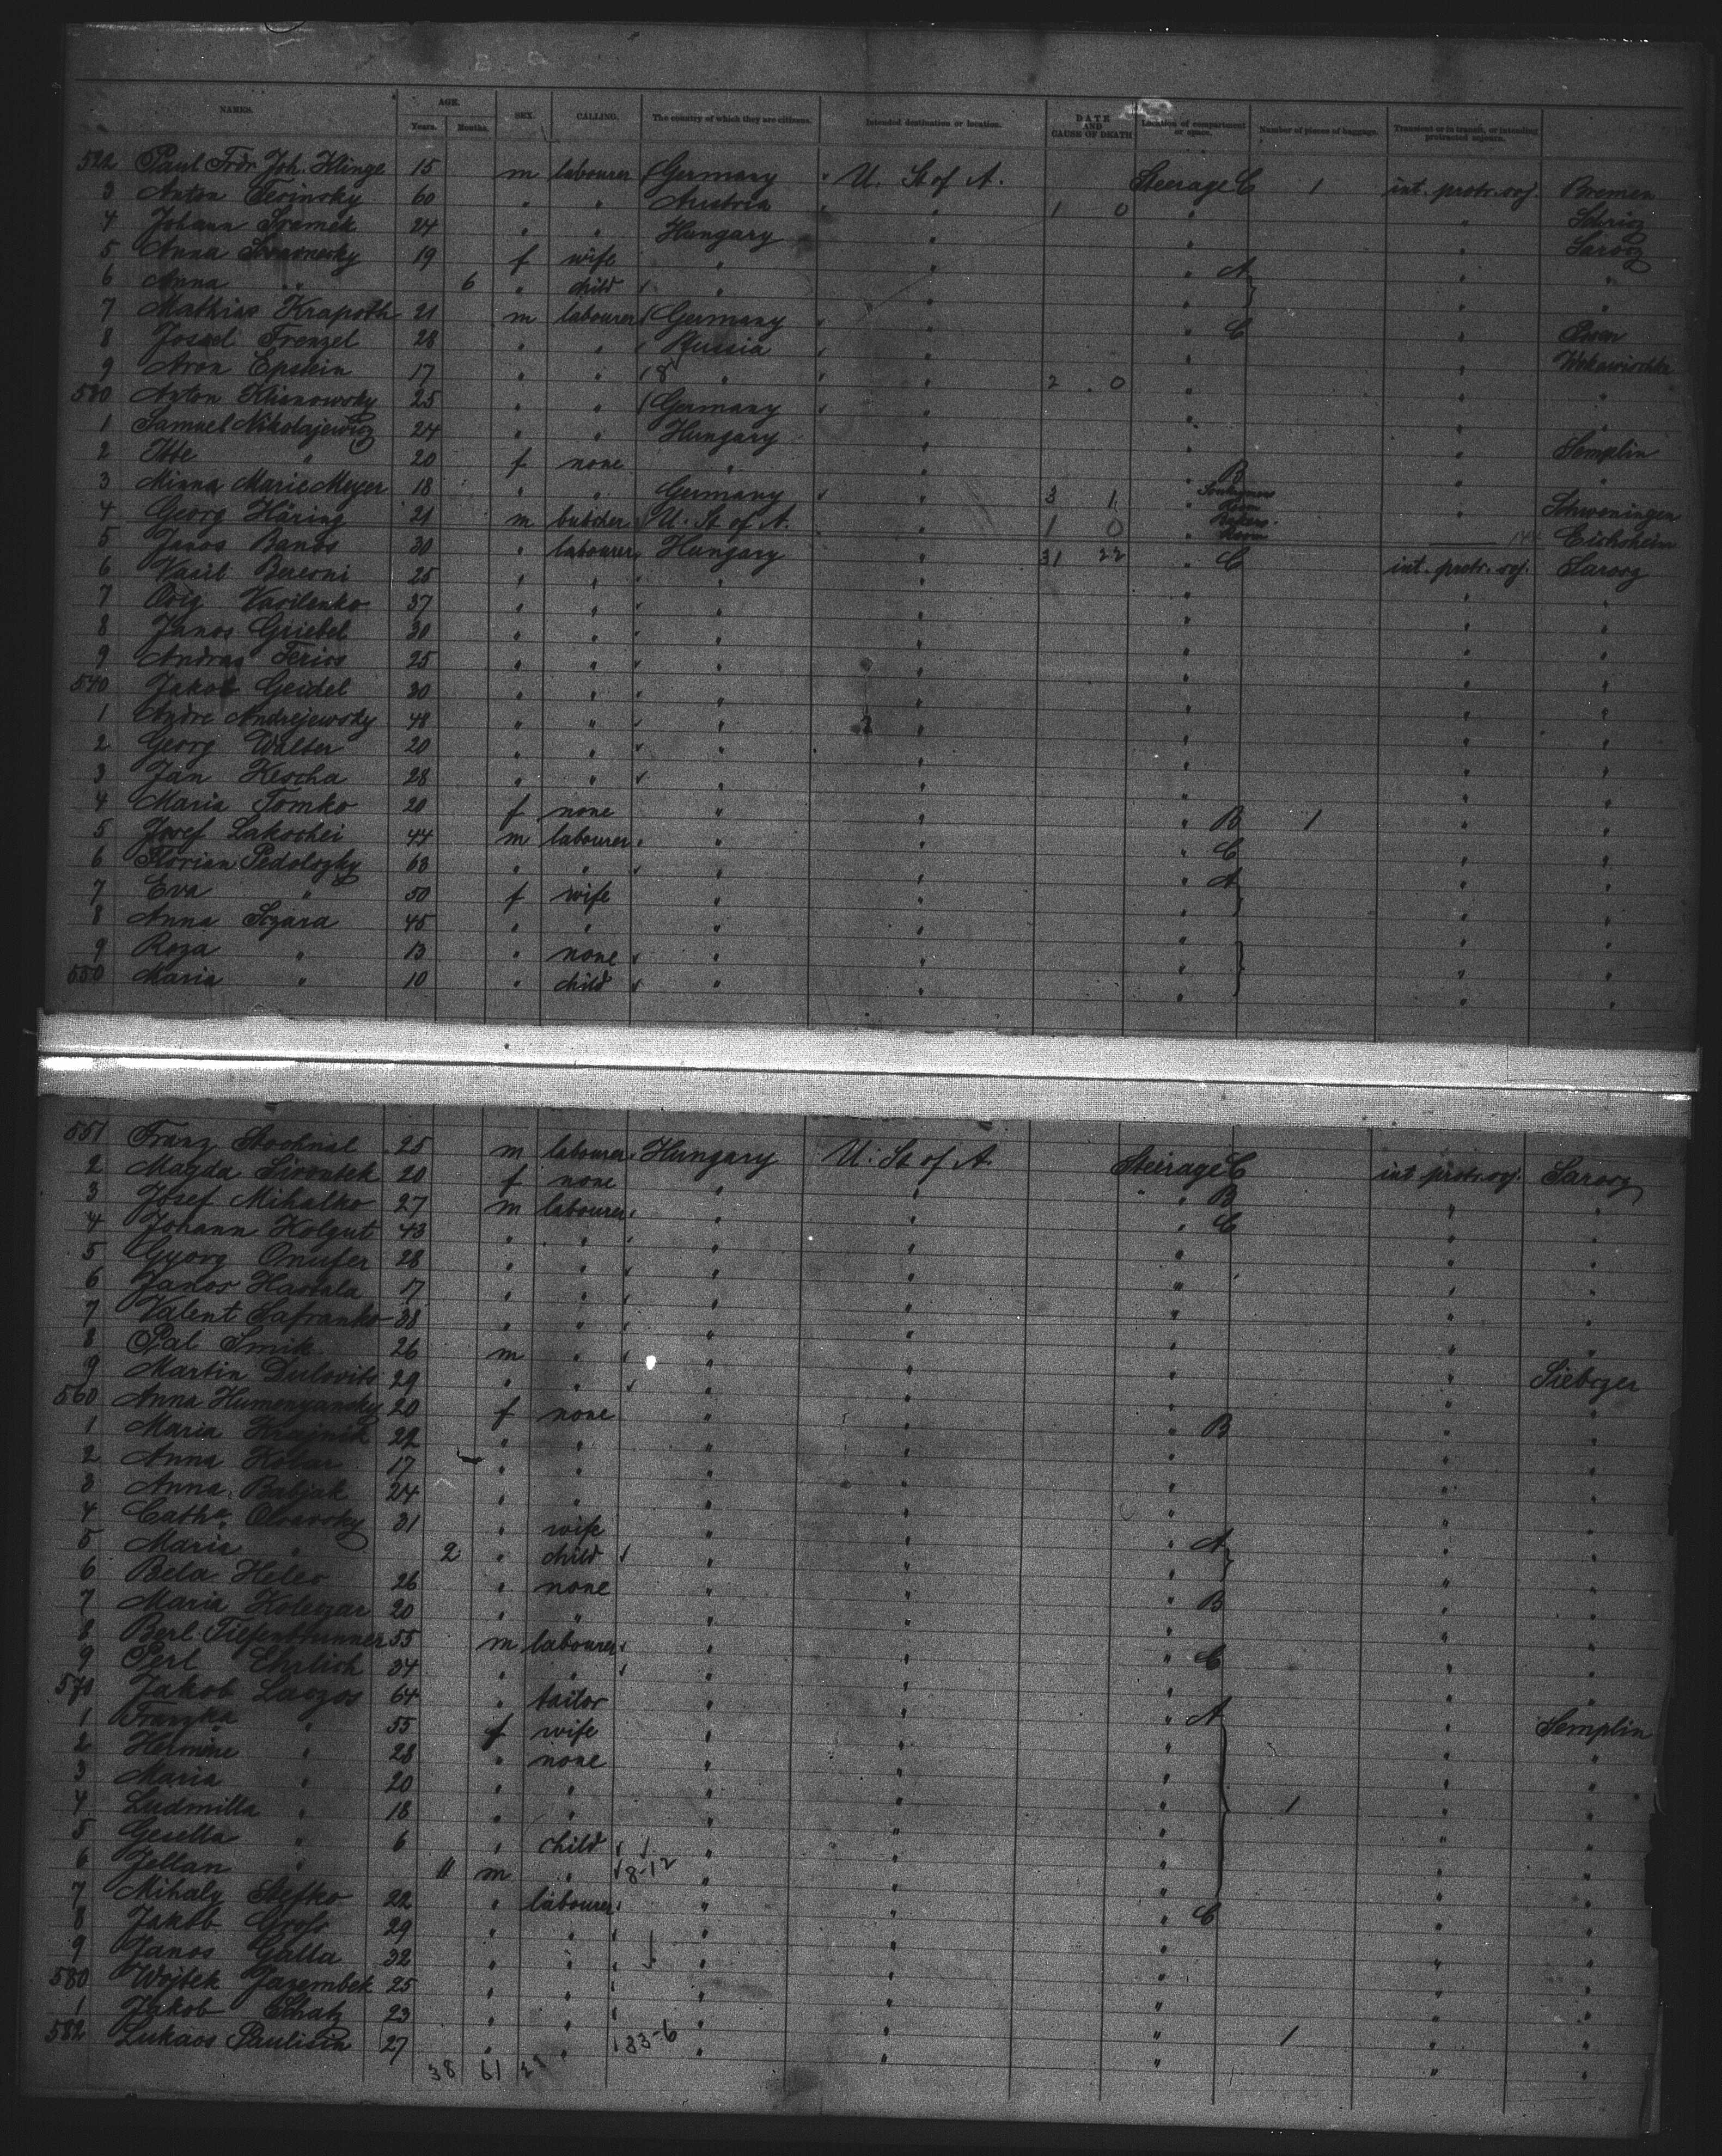 NAMES. AGE. Years. Months. SEX. CALLING. The country of which they are citizens. Intended destination or location. DATE AND CAUSE OF DEATH Location of compartment or space. Number of pieces of baggage. Transient or in transit, or intending protracted sojourn.
522 Paul Frdr. Joh. Klinge 15 m labourer Germany U. St of A. Steerage C 1 int. protr. soj. Bremen
3 Anton 60 " " Austria " 1 0 " "
4 Johann Sramek 24 " " Hungary " " " Sarosz
5 Anna 19 f wife " " " A " "
6 Anna " 6 " child " " " " "
7 Mathias Krapoth 21 m labourer Germany " " C "
8 Jossel Frenzel 28 " " Russia " " "
9 Aron Epstein 17 " " 8 " " 2 0 " " "
530 Anton Klianowsky 25 " " Germany " " " "
1 Samuel Nikolajewicz 24 " " Hungary " " " Semplin
2 Itte " 20 f none " " " B " "
3 Minna Marie Meyer 18 " " Germany " 3 1 " Room " Schweningen
4 Georg Häring 21 m butcher U. St of A. " 1 0 " Room Eichsheim
5 Janos Banos 30 " labourer Hungary " 31 22 " C int. protr. soj. Sarosz
6 Vasil Berconi 25 " " " " " " "
7 Vasilenko 37 " " " " " " "
8 Janos Griebel 30 " " " " " " "
9 Andras Ferios 25 " " " " " " "
540 Jakob Geidel 30 " " " " " " "
1 Andre Andrejewsky 48 " " " " " " "
2 Georg Walter 20 " " " " " " "
3 Jan Kescha 28 " " " " " " "
4 Maria Tomko 20 f none " " " B 1 " "
5 Josef Lakochei 44 m labourer " " " C " "
6 Florian Pedolszky 63 " " " " " A " "
7 Eva " 50 f wife " " " " "
8 Anna Szara 45 " " " " " " "
9 Roza " 13 " none " " " " "
550 Maria " 10 " child " " " " "
551 Franz Stochnal 25 m labourer Hungary U. St of A. Steerage C int. protr. soj. Sarosz
2 Magda 20 f none " " " B " "
3 Josef Mihalko 27 m labourer " " " C " "
4 Johann Holgut 43 " " " " " " "
5 Gyorg Onufer 28 " " " " " " "
6 Janos Hastala 17 " " " " " " "
7 Valent Safranko 38 " " " " " " "
8 Pal Smik 26 m " " " " " Siebzer
9 Martin Dulovits 29 " " " " " " "
560 Anna Humenyansky 20 f none " " " B " "
1 Maria Krajnik 22 " " " " " " "
2 Anna Kolar 17 " " " " " " "
3 Anna Babjak 24 " " " " " " "
4 Cathe. Olsavsky 31 " wife " " " A " "
5 Maria " 2 " child " " " " "
6 Bela Heleo 26 " none " " " B " "
7 Maria Kolesar 20 " " " " " " "
8 Berl Tiefenbrunner 55 m labourer " " " C " "
9 Perl Ehrlich 34 " " " " " " "
570 Jakob Laczos 64 " tailor " " " A " Semplin
1 Franzka " 55 f wife " " " " "
2 Hermine " 28 " none " " " " "
3 Maria " 20 " " " " " " "
4 Ludmilla " 18 " " " " " 1 " "
5 Gesella " 6 " child " " " " "
6 Jellan " 11 m " 8-12 " " " " "
7 Mihaly Stefko 22 " labourer " " " C " "
8 Jakob Gross 29 " " " " " " "
9 Janos Galla 32 " " " " " " "
580 Wojtek Jarembek 25 " " " " " " "
1 Jakob Schatz 23 " " " " " " "
582 Lukacs Paulisin 27 " " 83-6 " " " 1 " "
38 61